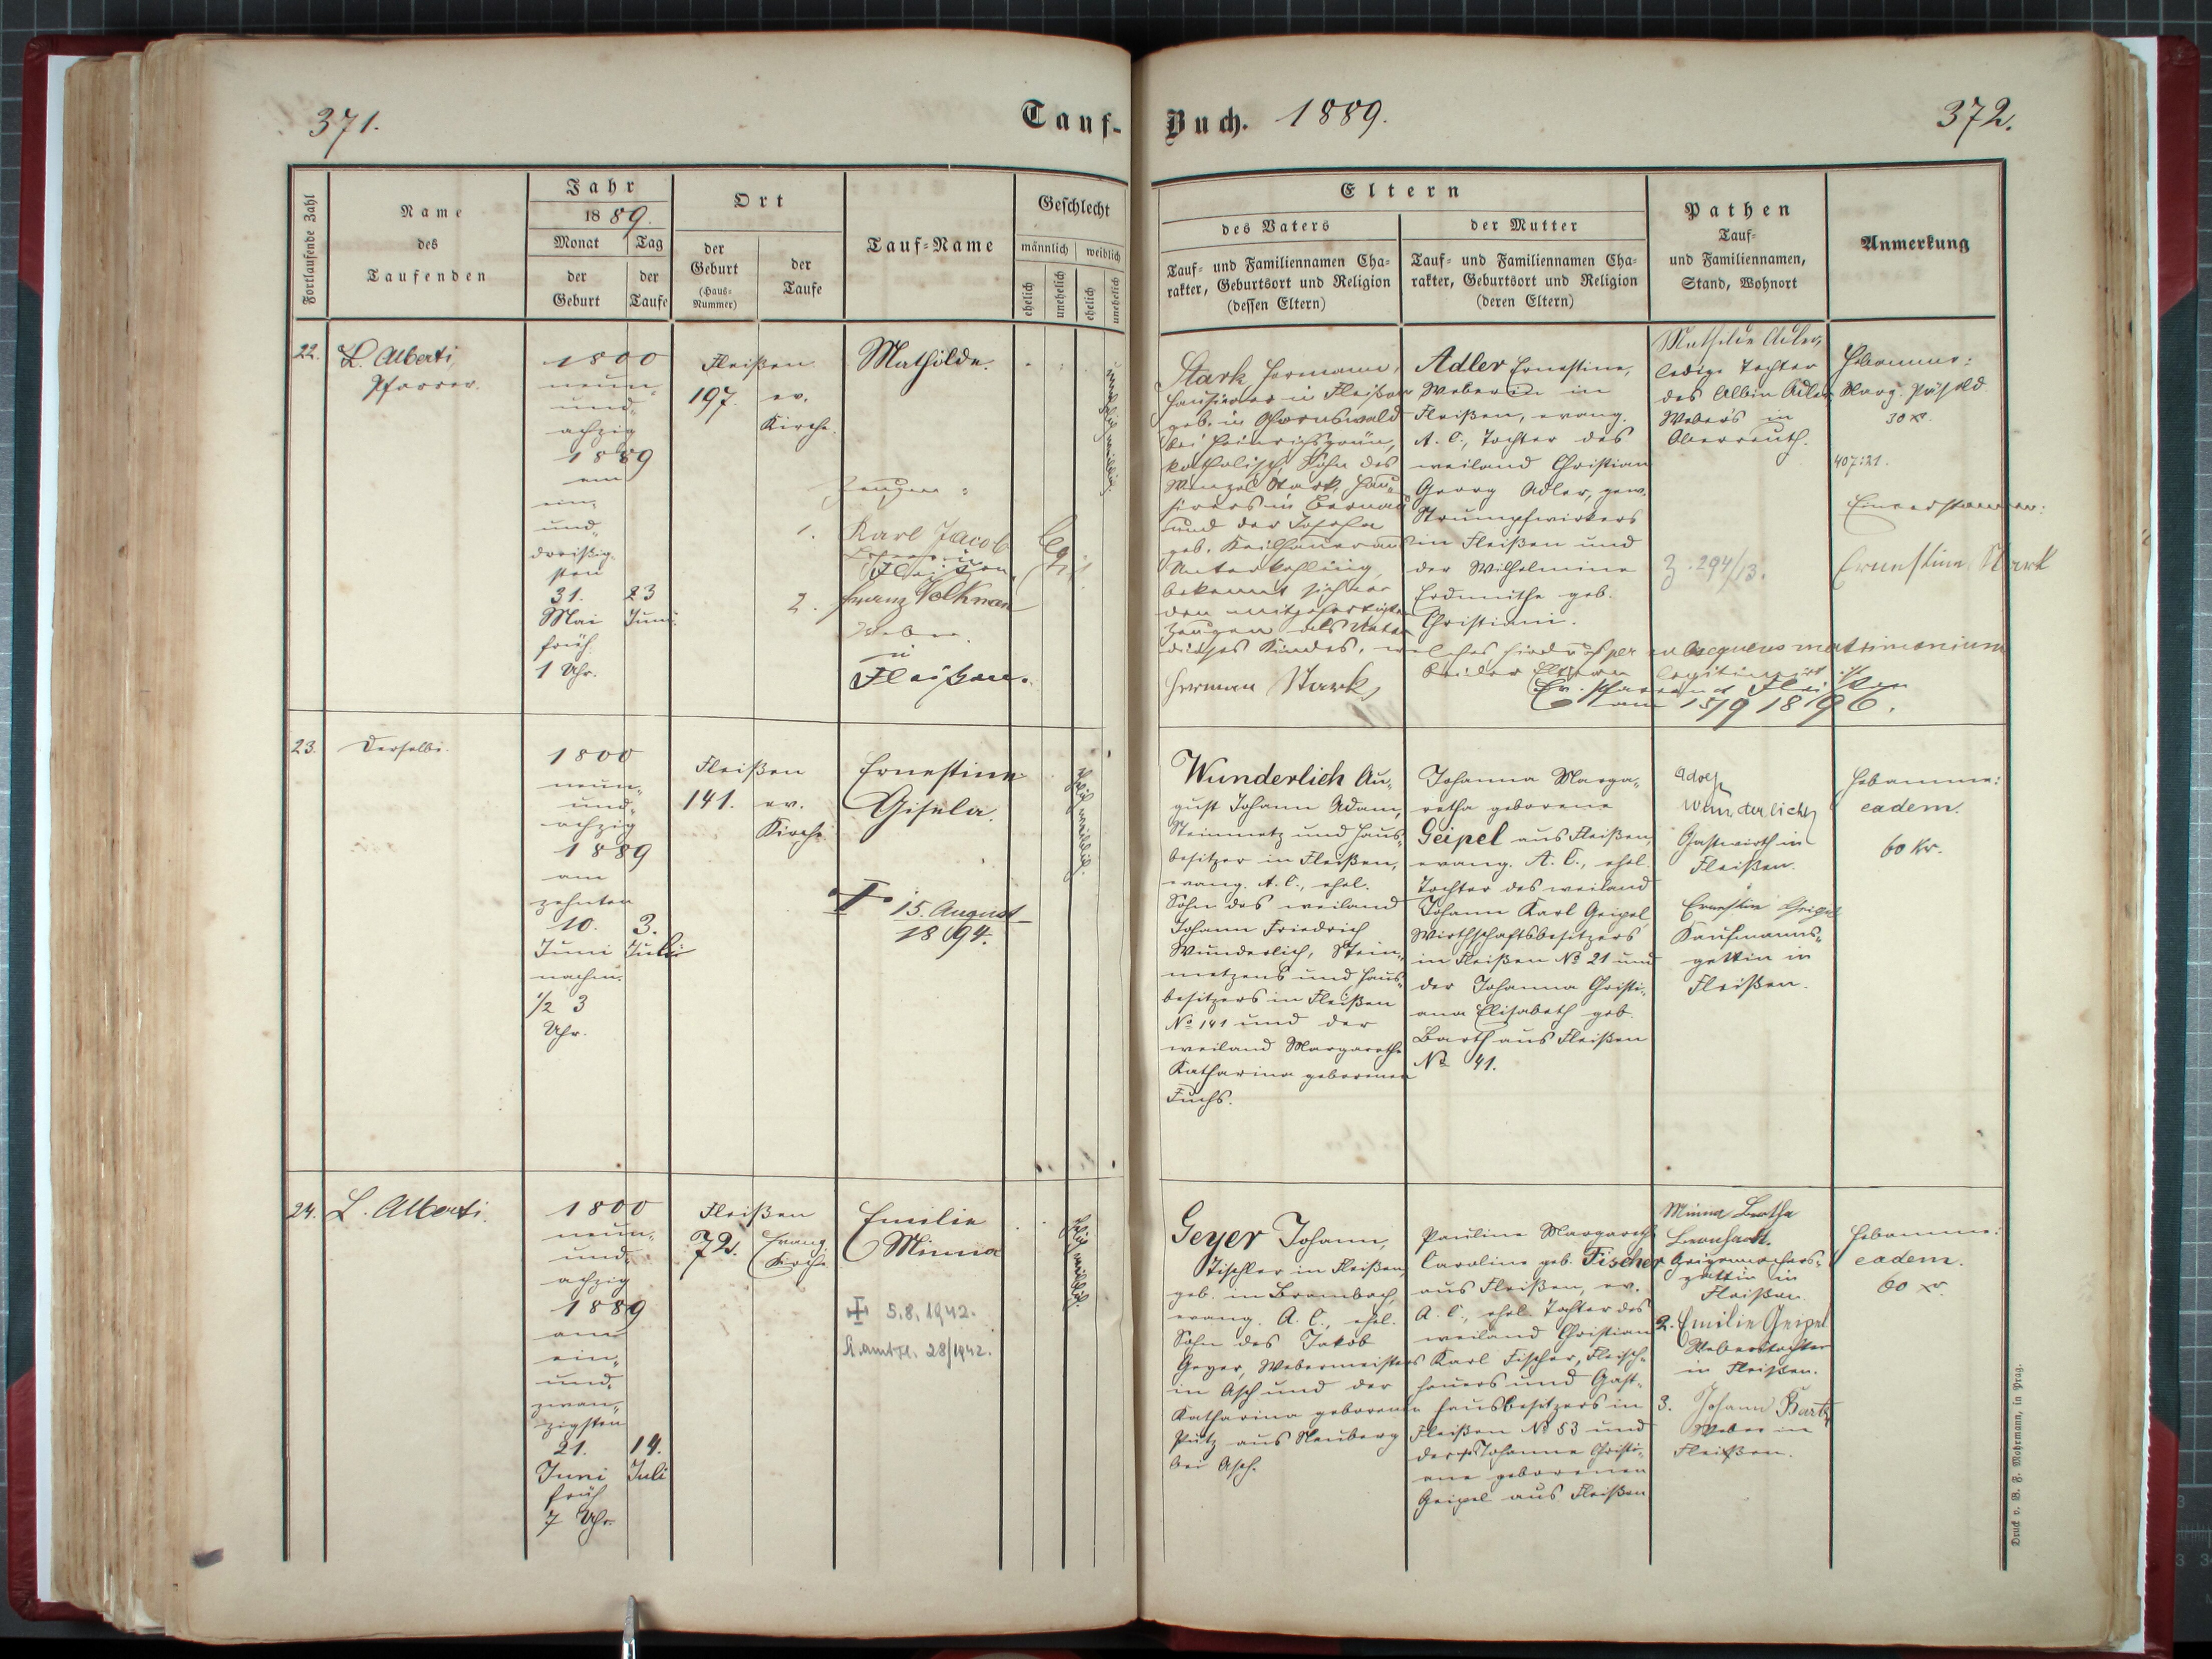 371.
Tauf-
Buch. 1889.
372.
Fortlaufende Zahl
Name
des
Taufenden
Jahr
1889.
Monat
der
Geburt
Tag
der
Taufe
Ort
der
Geburt
(Haus-
Nummer)
der
Taufe
Tauf-Name
Geschlecht
männlich
weiblich
ehelich
unehelich
ehelich
unehelich
Eltern
des Vaters
Tauf- und Familiennamen Cha-
rakter, Geburtsort und Religion
(dessen Eltern)
der Mutter
Tauf- und Familiennamen Cha-
rakter, Geburtsort und Religion
(deren Eltern)
Pathen
Tauf-
und Familiennamen,
Stand, Wohnort
Anmerkung
22.
L. Alberti,
Pfarrer.
1800
neun-
und-
achzig
1889
am
ein-
und-
dreißig-
sten
31.
Mai
früh
1 Uhr.
23
Juni.
Fleißen
197.
ev.
Kirche.
Mathilde.
Zeugen:
1. Karl Jacob
in
Fleissen.
2. Franz Volkman
Weber
in
Fleißen.
unehelich weiblich.
Stark Hermann,
Hausierer in Fleißen
geb. in
bei Heinrichsgrün,
katholisch, Sohn des
Wenzel Stark, Hau-
sirers in Bernau
und der Josefa
geb. aus
Unter
bekennt sich vor
den mitgefertigten
Zeugen als Vater
dieses Kindes, welches hiedurch per subsequens matrimonium
beider Eltern legitimirt ist
Herman Stark,
Ev. Pfarramt Fleißen
am 15/9 1896.
Adler Ernestine,
Weberin in
Fleißen, evang.
A. C., Tochter des
weiland Christian
Georg Adler, gew.
Strumpfwirkers
in Fleißen und
der Wilhelmine
Erdmuthe geb.
Christiani.
Mathilde Adler,
ledige Tochter
des Albin Adler
Webers in
Oberreuth.
Z. 294/13.
Hebamme:
Marg. Pätzold
30 xr.
407:21.
Einverstanden:
Ernestine Stark
23.
Derselbe.
1800
neun-
und-
achzig
1889
am
zehnten
10.
Juni
nachm.
1/2 3
Uhr.
3.
Juli
Fleißen
141.
ev.
Kirche
Ernestine
Gisela.
15. August
1894.
ehelich weiblich.
Wunderlich Au-
gust Johann Adam,
Steinmetz und Haus-
besitzer in Fleißen,
evang. A. C., ehel.
Sohn des weiland
Johann Friedrich
Wunderlich, Stein-
metzens und Haus-
besitzers in Fleißen
No 141 und der
weiland Margarethe
Katharina geborenen
Fuchs.
Johanna Marga-
retha geborene
Geipel aus Fleißen,
evang. A. C., ehel.
Tochter des weiland
Johann Karl Geipel,
Wirthschaftsbesitzers
in Fleißen No 21 und
der Johanna Christi-
ana Elisabeth geb.
Barth aus Fleißen
No 41.
Adolf
Wunderlich
Gastwirth in
Fleißen.
Ernestine Geipel
Kaufmanns-
gattin in
Fleißen.
Hebamme:
eadem.
60 Kr.
24.
L. Alberti.
1800
neun-
und-
achzig
1889
am
ein-
und-
zwan-
zigsten
21.
Juni
früh
7 Uhr.
14.
Juli
Fleißen
72.
Evang.
Kirche
Emilie
Minna
5.8.1942.
St.amt Fl. 28/1942.
ehelich weiblich.
Geyer Johann,
Tischler in Fleißen,
geb. in Brambach,
evang. A. C., ehel.
Sohn des Jakob
Geyer, Webermeisters
in Asch und der
Katharina geborenen
Putz aus Neuberg
bei Asch.
Pauline Margareth
Caroline geb. Fischer
aus Fleißen, ev.
A. C., ehel. Tochter des
weiland Christian
Karl Fischer, Fleisch-
hauers und Gast-
hausbesitzers in
Fleißen No 53 und
der Johanne Christi-
ane geborenen
Geipel aus Fleißen
Minna Bertha
Bernhardt.
Geigenmachers-
gattin in
Fleißen
2. Emilie Geipel
Weberstochter
in Fleißen.
3. Johann Barth
Weber in
Fleißen.
Hebamme:
eadem.
60 xr.
Druck v. B. F. Mohrmann, in Prag.